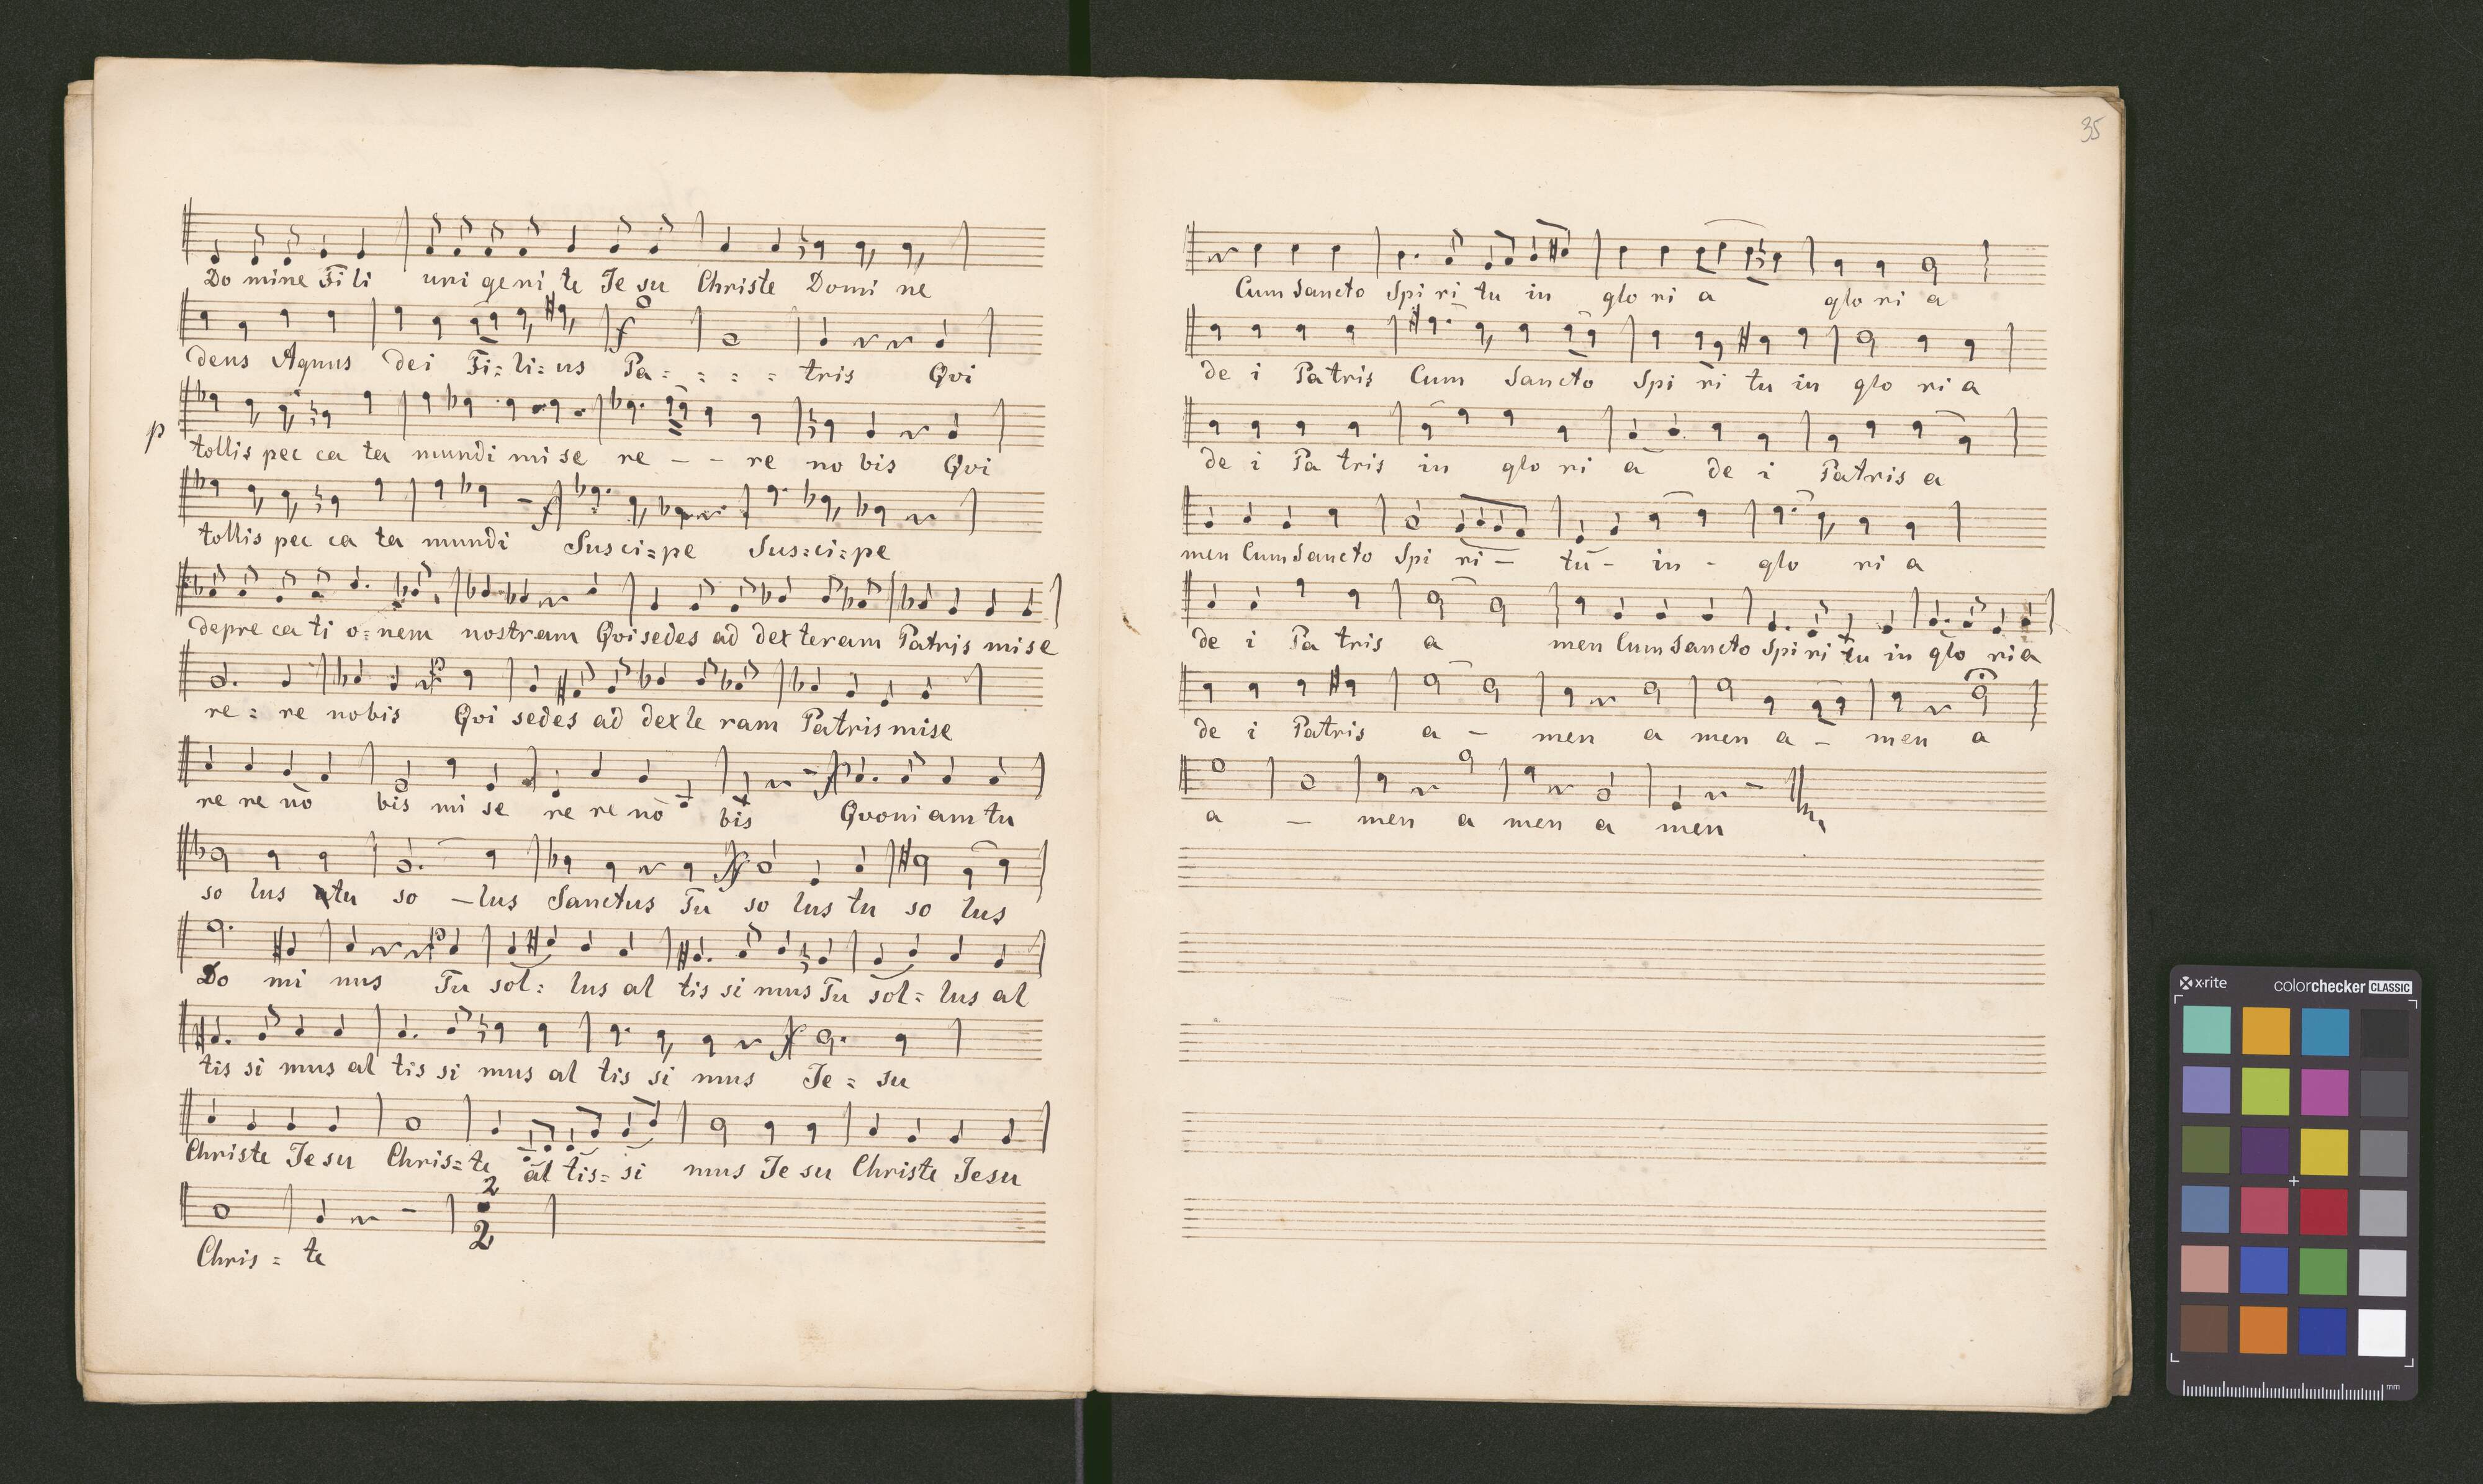 Do mine Fi li uni ge ni te Je su Christe Domi ne
deus Agnus dei Fi=li=us Pa= = = = tris Qvi
p
tollis pec ca ta mundi mi se re - - re no bis Qvi
tollis pec ca ta mundi Susci=pe Sus=ci=pe
depre ca ti o=nem nostram Qvi sedes ad dex teram Patris mise
re = re nobis Qvi sedes ad dexte ram Patris mise
re re no bis mi se re re no bis Qvoni am tu
so lus tu so - lus Sanctus Tu so lus tu so lus
Do mi nus Tu sol= lus al tis si mus Tu sol= lus al
tis si mus al tis si mus al tis si mus Je = su
Christe Je su Chris=te al tis= si mus Je su Christe Jesu
2
2
Chris = te
35
Cum Sancto Spi ri tu in glo ri a glo ri a
de i Pa tris Cum Sancto Spi ri tu in glo ri a
de i Pa tris in glo ri a de i Patris a
men Cum Sancto Spi ri - tu - in - glo ri a
de i Pa tris a men Cum Sancto Spi ri tu in glo ria
de i Patris a - men a men a - men a
a - men a men a men
x-rite colorchecker CLASSIC
mm